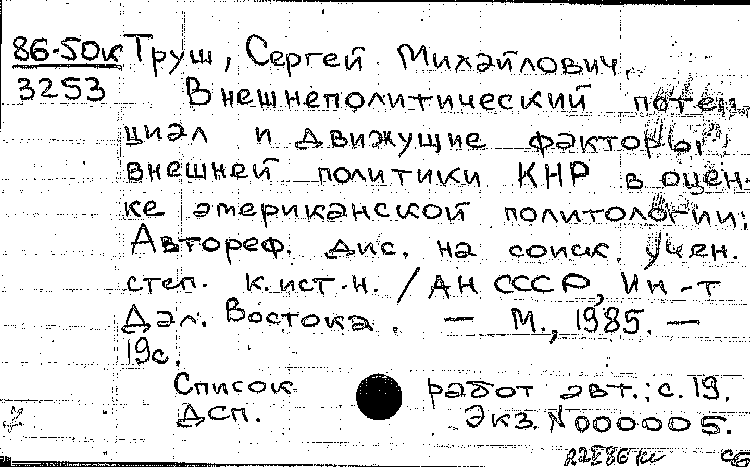 86-50к Труш, Сергей Михайлович.
3253 Внешнеполитический потен-
циал и движущие факторы
внешней политики КНР в оцен-
ке американской политологии:
Автореф. дис. на соиск. учен.
степ. к. ист. н. / АН СССР, Ин-т
Дал. Востока. — М., 1985. —
19с.
Список работ авт.: с. 19.
ДСП. Экз. N 000005.